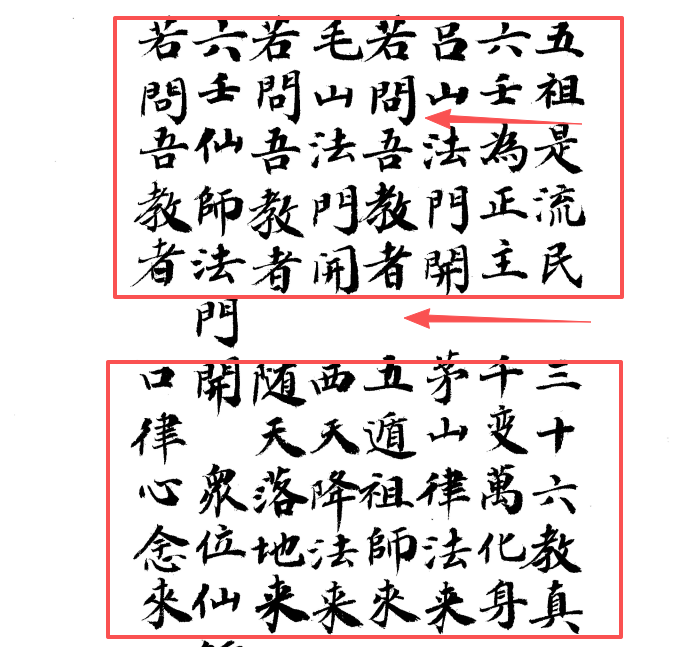 五祖是流民 三十六教真
六壬為正主 千变萬化身
呂山法門開 茅山律法来
若問吾教者 五遁祖師來
毛山法門開 西天降法来
若問吾教者 随天落地来
六壬仙師法門開 眾位仙
若問吾教者 口律心念來